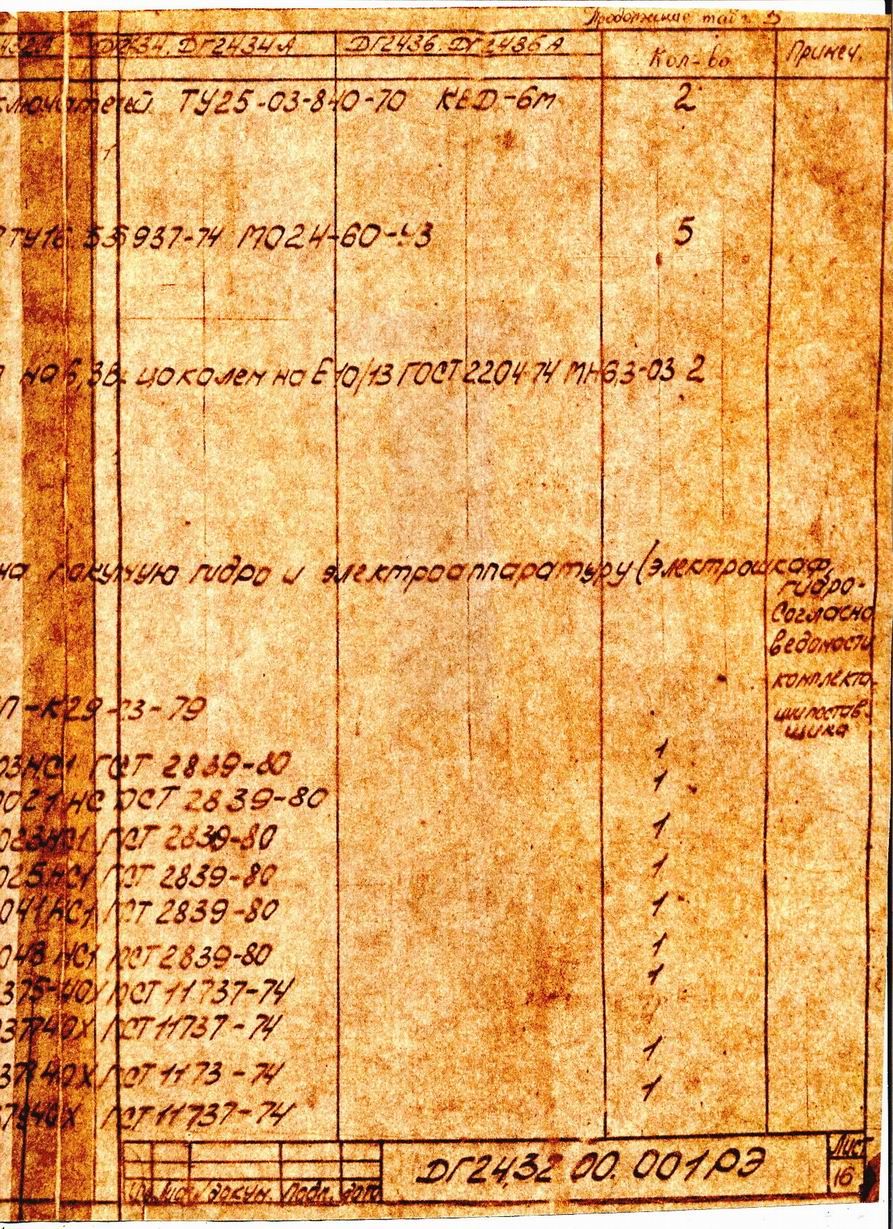 Продолжение табл. 3
ДГ2434, ДГ2434А ДГ2436, ДГ2436А Кол-во Примеч.
ключателей ТУ25-03-840-70 КЕД-6м 2
ТУ16. 535937-74 МО24-60-У3 5
на 6,3В. цоколем на Е10/13 ГОСТ 2204-74 МН6,3-03 2
на покупную гидро и электроаппаратуру (электрошкаф,
гидро-
Согласно
ведомости
комплекта-
ции постав-
щика
П-К29-23-79
03 НС1 ГОСТ 2839-80 1
021 НС ОСТ 2839-80 1
023 НС1 ГОСТ 2839-80 1
025 НС1 ГОСТ 2839-80 1
041 НС1 ГОСТ 2839-80 1
043 НС1 ГОСТ 2839-80 1
375-40Х ГОСТ 11737-74 1
377 40Х ГОСТ 11737-74
37 40Х ГОСТ 1173-74 1
7 40Х ГОСТ 11737-74 1
Изм. Лист № докум. Подп. Дата
ДГ2432 00.001РЭ
Лист
16